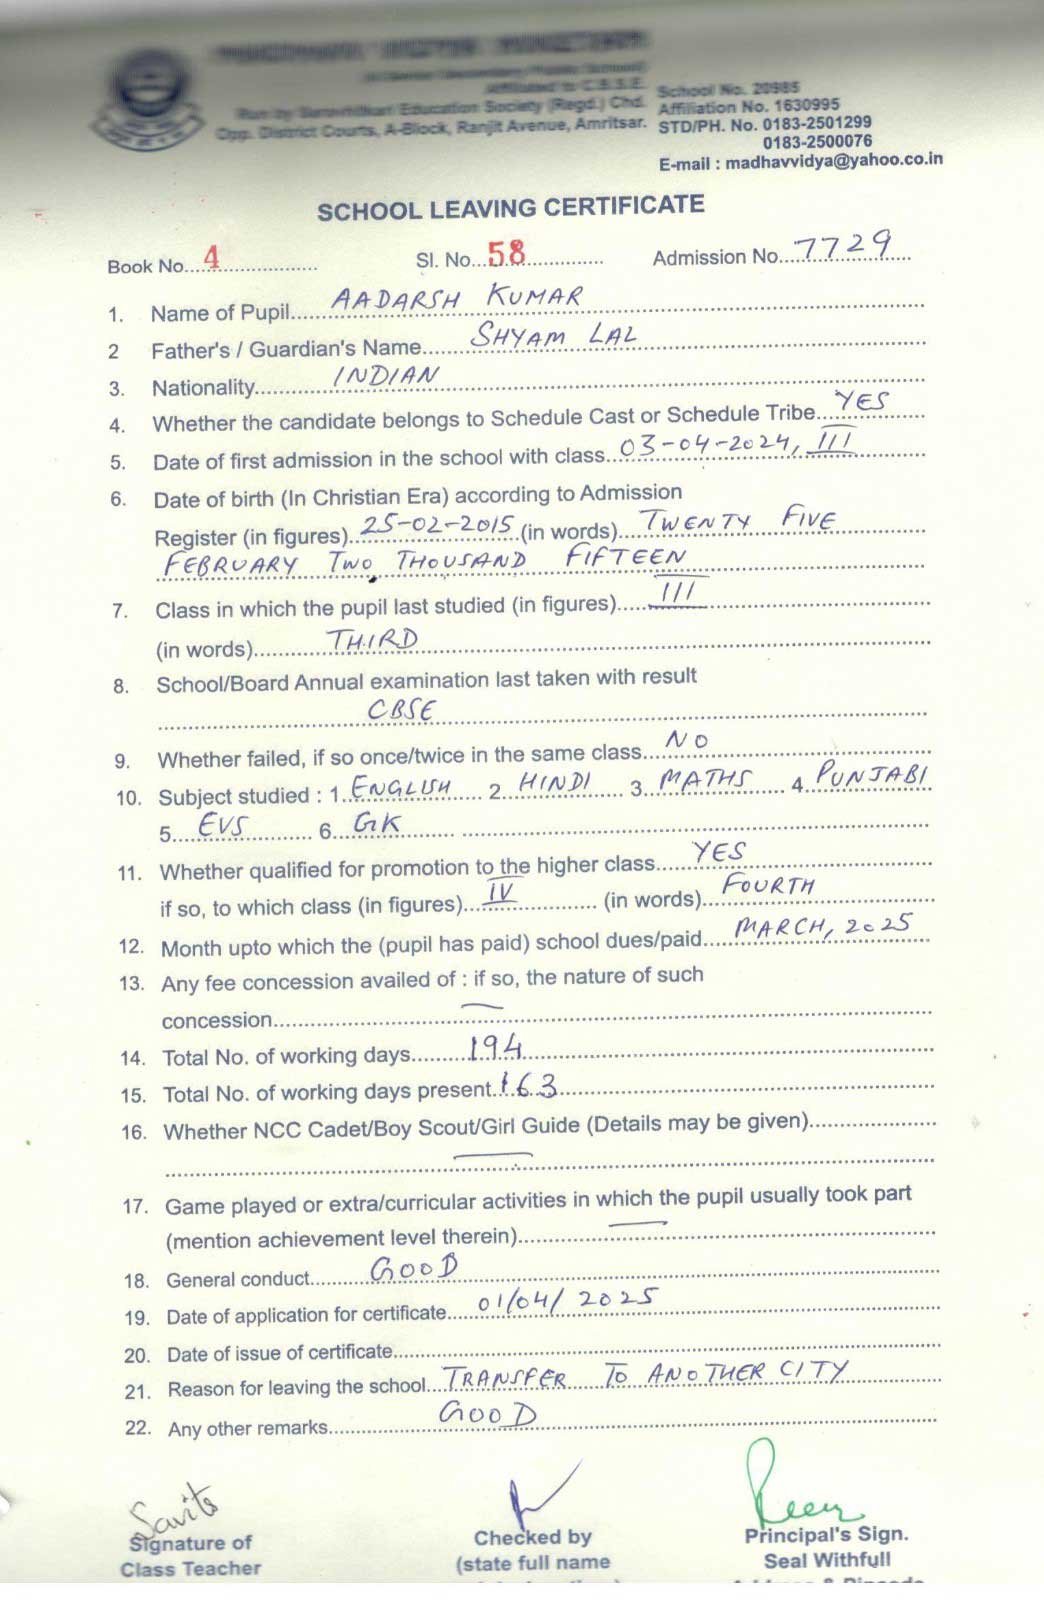 (A Senior Secondary Public School)
Affiliated to C.B.S.E.
Run by Sarwhitkari Education Society (Regd.) Chd.
Opp. District Courts, A-Block, Ranjit Avenue, Amritsar.
School No. 20985
Affiliation No. 1630995
STD/PH. No. 0183-2501299
0183-2500076
E-mail : madhavvidya@yahoo.co.in
SCHOOL LEAVING CERTIFICATE
Book No. 4 Sl. No. 58 Admission No. 7729
1. Name of Pupil AADARSH KUMAR
2 Father's / Guardian's Name SHYAM LAL
3. Nationality INDIAN
4. Whether the candidate belongs to Schedule Cast or Schedule Tribe YES
5. Date of first admission in the school with class 03-04-2024, III
6. Date of birth (In Christian Era) according to Admission
Register (in figures) 25-02-2015 (in words) TWENTY FIVE
FEBRUARY TWO THOUSAND FIFTEEN
7. Class in which the pupil last studied (in figures) III
(in words) THIRD
8. School/Board Annual examination last taken with result
CBSE
9. Whether failed, if so once/twice in the same class NO
10. Subject studied : 1. ENGLISH 2. HINDI 3. MATHS 4. PUNJABI
5. EVS 6. GK
11. Whether qualified for promotion to the higher class YES
if so, to which class (in figures) IV (in words) FOURTH
12. Month upto which the (pupil has paid) school dues/paid MARCH, 2025
13. Any fee concession availed of : if so, the nature of such
concession —
14. Total No. of working days 194
15. Total No. of working days present 163
16. Whether NCC Cadet/Boy Scout/Girl Guide (Details may be given)
—
17. Game played or extra/curricular activities in which the pupil usually took part
(mention achievement level therein) —
18. General conduct GOOD
19. Date of application for certificate 01/04/2025
20. Date of issue of certificate
21. Reason for leaving the school TRANSFER TO ANOTHER CITY
22. Any other remarks GOOD
Savita
Signature of Checked by Principal's Sign.
Class Teacher (state full name Seal Withfull